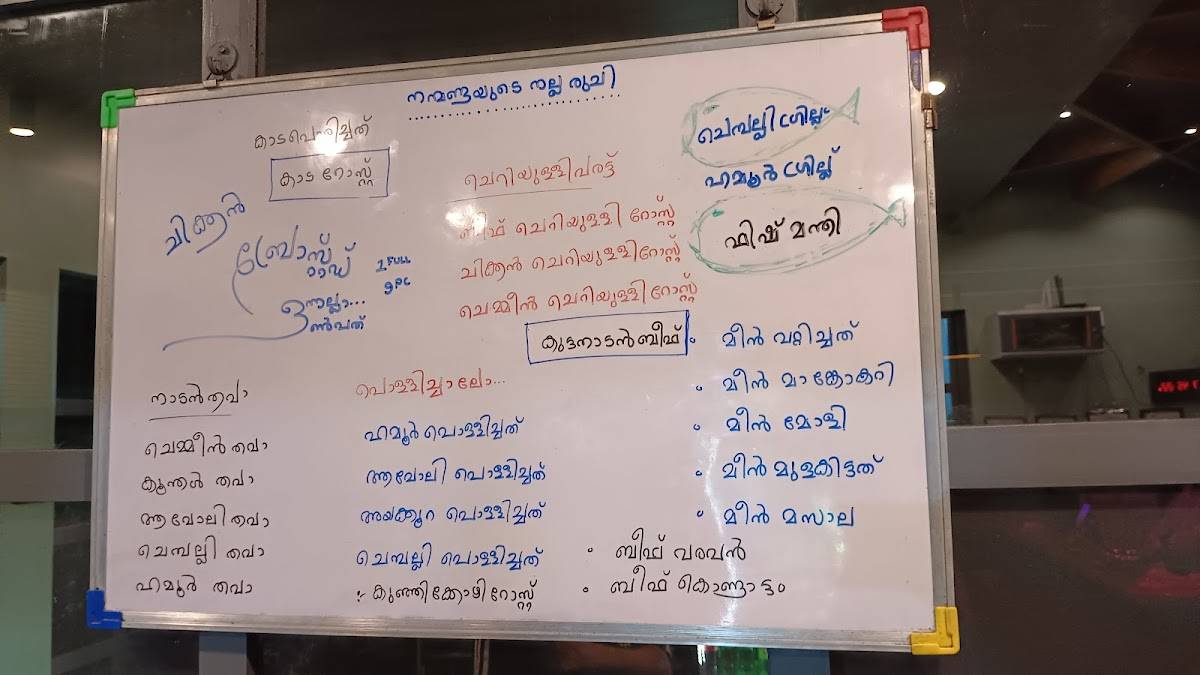 നന്മണ്ടയുടെ നല്ല രുചി
കാട പെന്തിച്ചത്
കാട റോസ്റ്റ്
ചിക്കൻ
ബ്രോസ്റ്റഡ്
1 FULL
9 PC
ഒന്നല്ലാ...
ൺപത്
ചെറിയുള്ളിവരട്ട്
ബീഫ് ചെറിയുള്ളി റോസ്റ്റ്
ചിക്കൻ ചെറിയുള്ളിറോസ്റ്റ്
ചെമ്മീൻ ചെറിയുള്ളിറോസ്റ്റ്
ചെമ്പല്ലി ഗ്രില്ല്
ഹമൂർ ഗ്രില്ല്
ഫിഷ് മന്തി
കുട്ടനാടൻ ബീഫ്
• മീൻ വറ്റിച്ചത്
• മീൻ മാങ്കോകറി
• മീൻ മോളി
• മീൻ മുളകിട്ടത്
• മീൻ മസാല
നാടൻ തവാ
ചെമ്മീൻ തവാ
കൂന്തൾ തവാ
ആവോലി തവാ
ചെമ്പല്ലി തവാ
ഹമൂർ തവാ
പൊള്ളിച്ചാലോ...
ഹമൂർ പൊള്ളിച്ചത്
ആവോലി പൊള്ളിച്ചത്
അയക്കൂറ പൊള്ളിച്ചത്
ചെമ്പല്ലി പൊള്ളിച്ചത്
കുഞ്ഞിക്കോഴിറോസ്റ്റ്
• ബീഫ് വരവൻ
• ബീഫ് കൊണ്ടാട്ടം